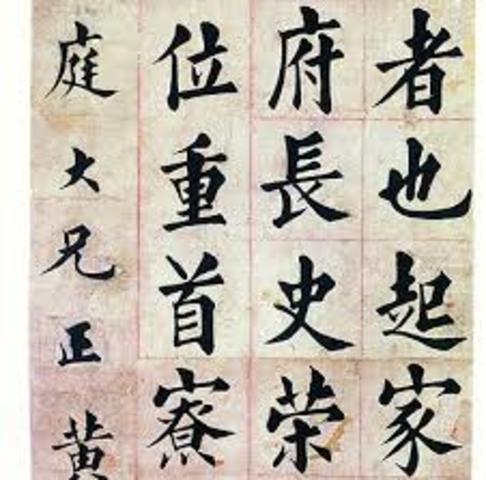 者也起家
府長史荣
位重首寮
庭大兄正黄